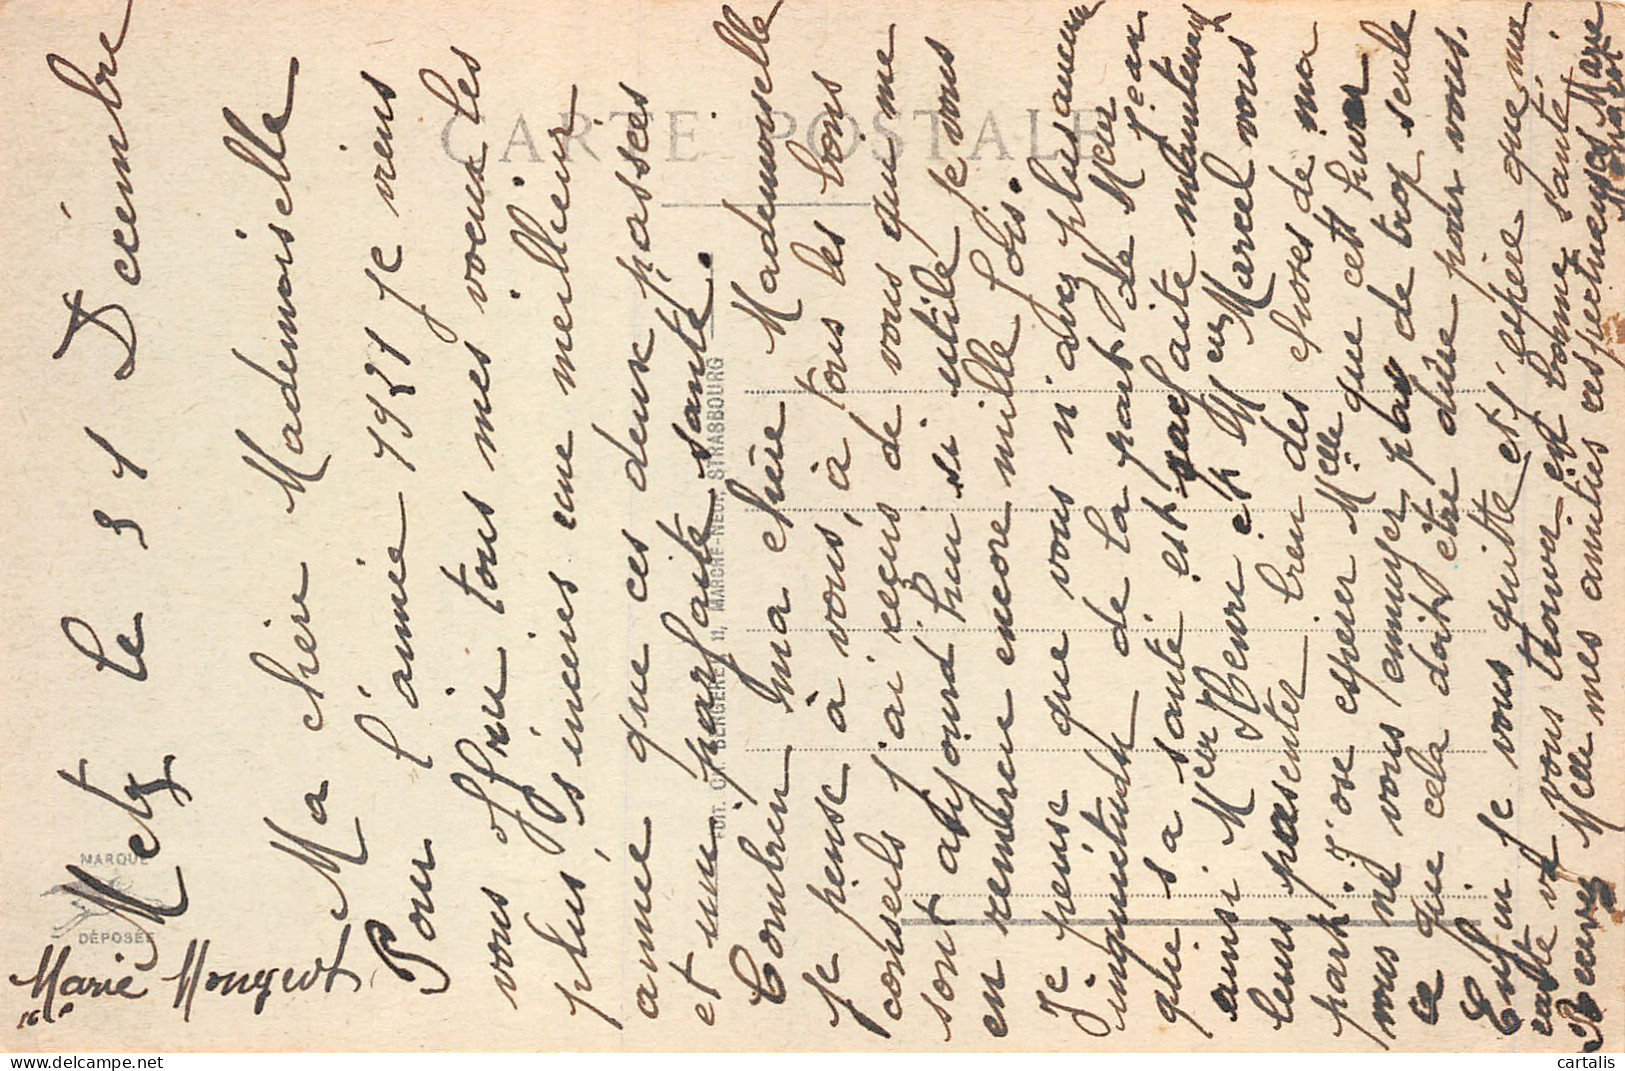 Metz le 31 Décembre
Ma chère Mademoiselle
Pour l'année 1921 je viens
vous offrir tous mes voeux les
plus sincères une meilleur
année que ces deux passées
et une parfaite santé.
Combien ma chère Mademoiselle
je pense à vous, à tous les bons
conseils j'ai reçus de vous qui me
sont aujourd'hui si utile je vous
en remercie encore mille fois.
Je pense que vous n'avez plus aucune
inquiétude de la part de Mcier Jean
qui sa santé est parfaite maintenant
ainsi Mcier Henri et Mcier Marcel vous
leurs présenter bien des choses de ma
part. J'ose espérer Melle que cet hiver
vous ne vous ennuyer pas de trop seule
ce que cela doit être dure pour vous.
Enfin je vous quitte et j'espère que ma
carte vous trouve en bonne santé
Recevez Melle mes amitiés respectueuses Marie
Mongeot
Marie Mongeot
CARTE POSTALE
MARQUE
DÉPOSÉE
EDIT. CH. BERGERET, 11, MARCHÉ-NEUF, STRASBOURG
cartalis